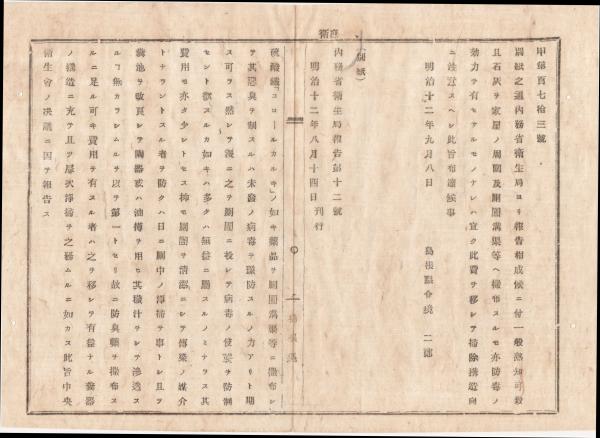 甲第百七拾三號
別紙之通内務省衛生局ヨリ報告相成候ニ付一般熟知可致
且石灰ヲ家屋ノ周圍及厠圊溝渠等ヘ撒布スルモ亦防毒ノ
効力ヲ有セサルモノナレハ宜ク此費ヲ移シテ掃除搆造向
ニ注意スヘシ此旨布達候事
明治十二年九月八日
島根縣令境二郎
(別紙)
内務省衛生局報告第十二號
明治十二年八月十四日刊行
硫酸鐵「コロールカルキ」ノ如キ藥品ヲ厠圊溝渠等ニ撒布シ
テ其惡臭ヲ制スルハ未發ノ病毒ヲ豫防スルノ力アリト期
ス可ラス然レヲ漫ニ之ヲ厠圊ニ投シテ病毒ノ侵襲ヲ防制
セント欲スルカ如キハ多クハ無益ニ屬スルノミナラス其
費用モ亦タ少シトセス抑モ厠圊ヲ清潔ニシテ傳染ノ媒介
トナラントスル者ヲ防クハ日ニ厠中ノ淨掃ヲ事トシ且ツ
糞池ヲ改良シテ陶器或ハ油樽ヲ用ヒ其穢汁ヲシテ滲透ス
ル「無カラシムルヲ以テ第一トセリ故ニ防臭藥ヲ撒布ス
ルニ足ル可キ費用ヲ有スル者ハ之ヲ移シテ有益ナル糞器
ノ搆造ニ充テ且ツ屢次淨掃ヲ之務ムルニ如カス此旨中央
衛生會ノ決議ニ因テ報告ス
衛
島根縣